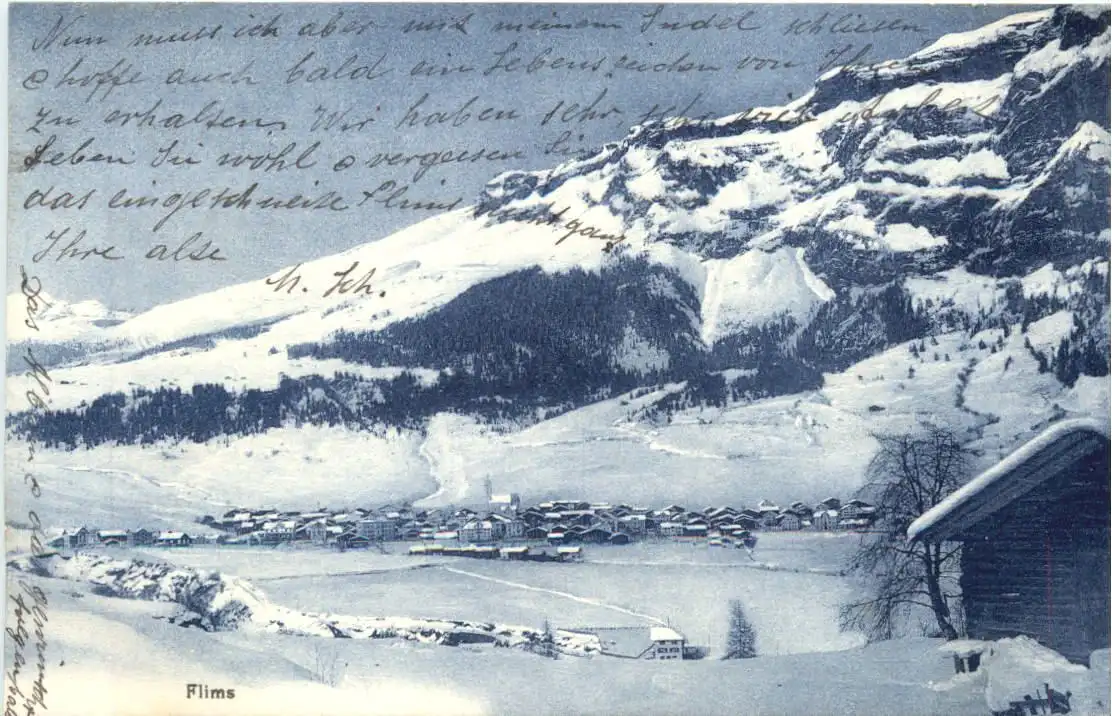 Nun muss ich aber mit meinem Sudel schliessen
& hoffe auch bald ein Lebenszeichen von Ihnen
zu erhalten. Wir haben sehr sehr viel Arbeit
Leben Sie wohl & vergessen Sie
das eingeschneite Flims nicht ganz
Ihre alse
M. Sch.
Das
Flims